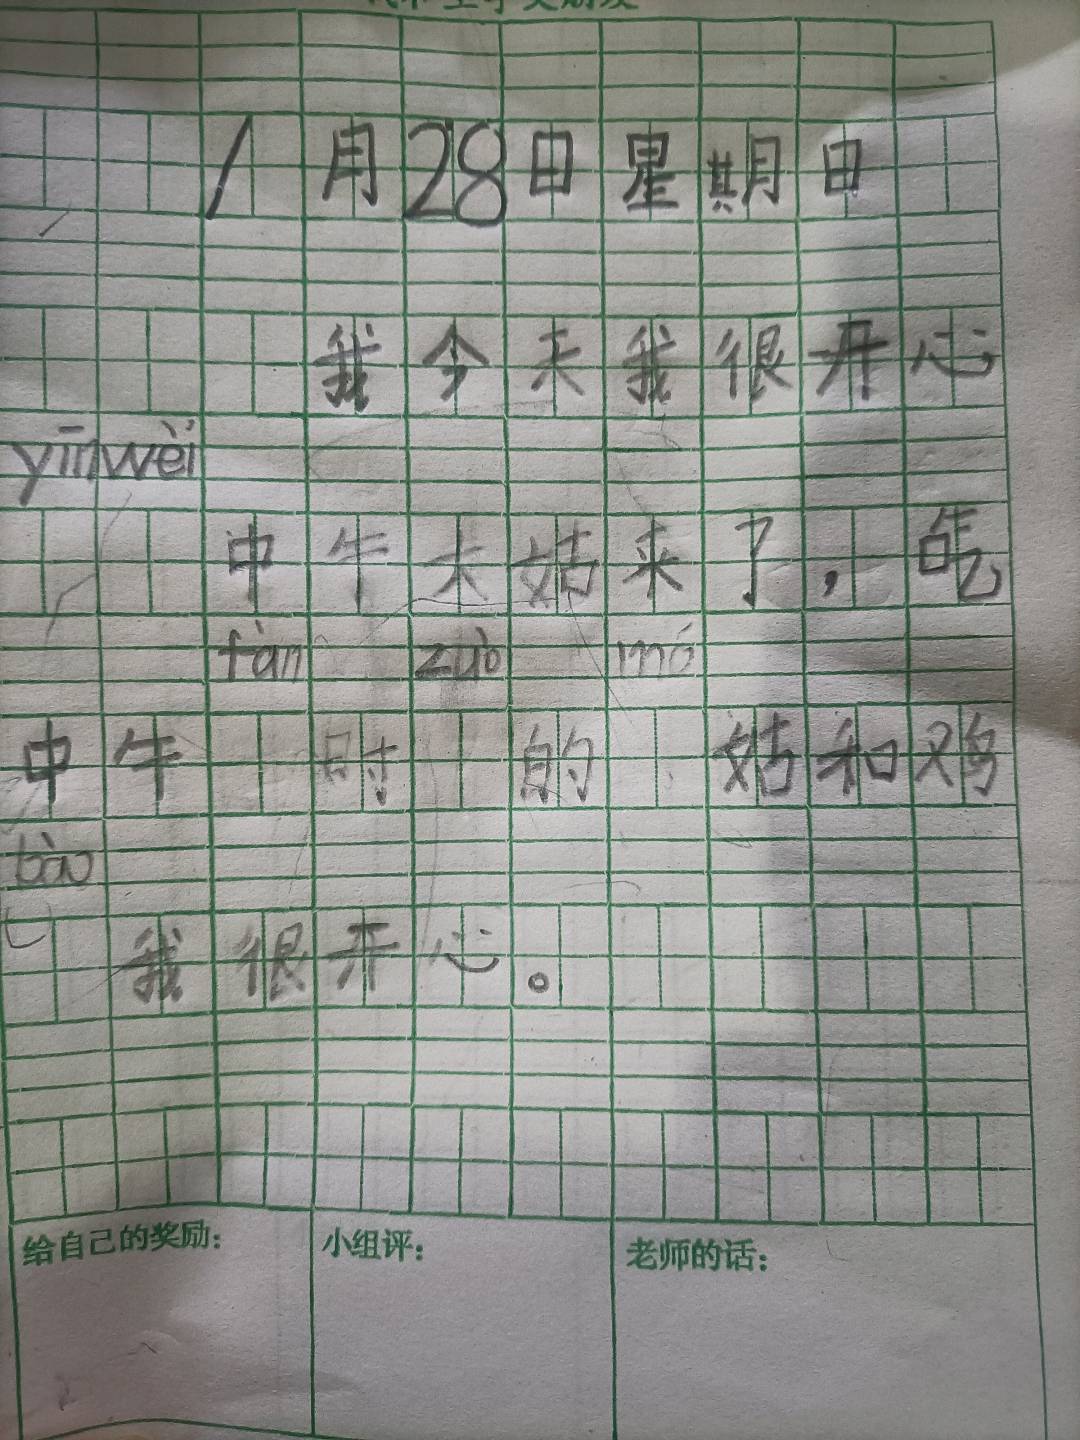 1月28日星期日
我今天我很开心
yīnwèi
中午大姑来了，吃
fàn zuò mó
中午 时 的 姑和鸡
bāo
我很开心。
给自己的奖励： 小组评： 老师的话：